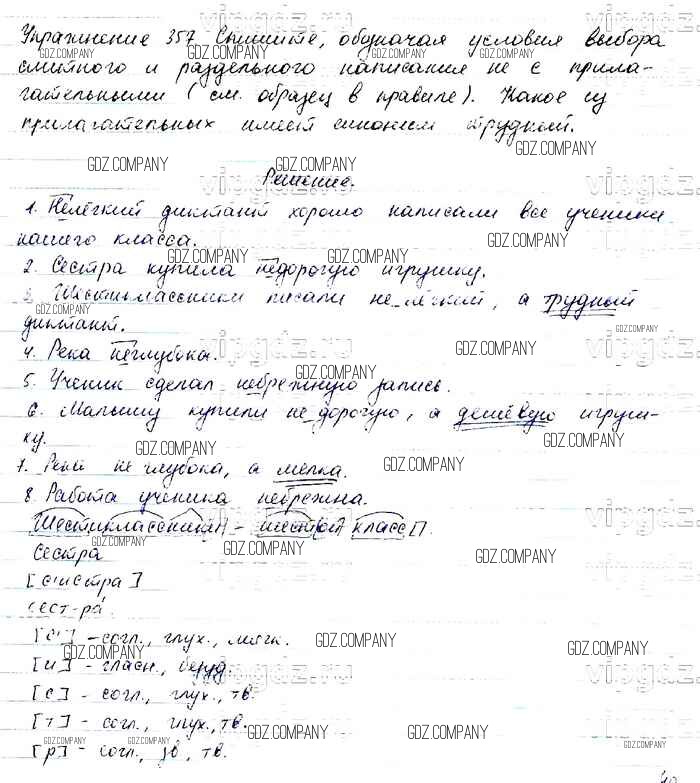 Упражнение 357 Спишите, обозначая условия выбора
слитного и раздельного написания не с прила-
гательными (см. образец в правиле). Какое из
прилагательных имеет синоним трудный.
Решение.
1. Нелёгкий диктант хорошо написали все ученики
нашего класса.
2. Сестра купила недорогую игрушку.
3. Шестиклассники писали не лёгкий, а трудный
диктант.
4. Река неглубока.
5. Ученик сделал небрежную запись.
6. Малышу купили не дорогую, а дешёвую игруш-
ку.
7. Река не глубока, а мелка.
8. Работа ученика небрежна.
Шестиклассник[] - шест[ой] класс[].
Сестра
[с'истра]
сест-ра́.
[с'] - согл., глух., мягк.
[и] - гласн., безуд.
[с] - согл., глух., тв.
[т] - согл., глух., тв.
[р] - согл., зв., тв.
GDZ.COMPANY
vipgdz.ru